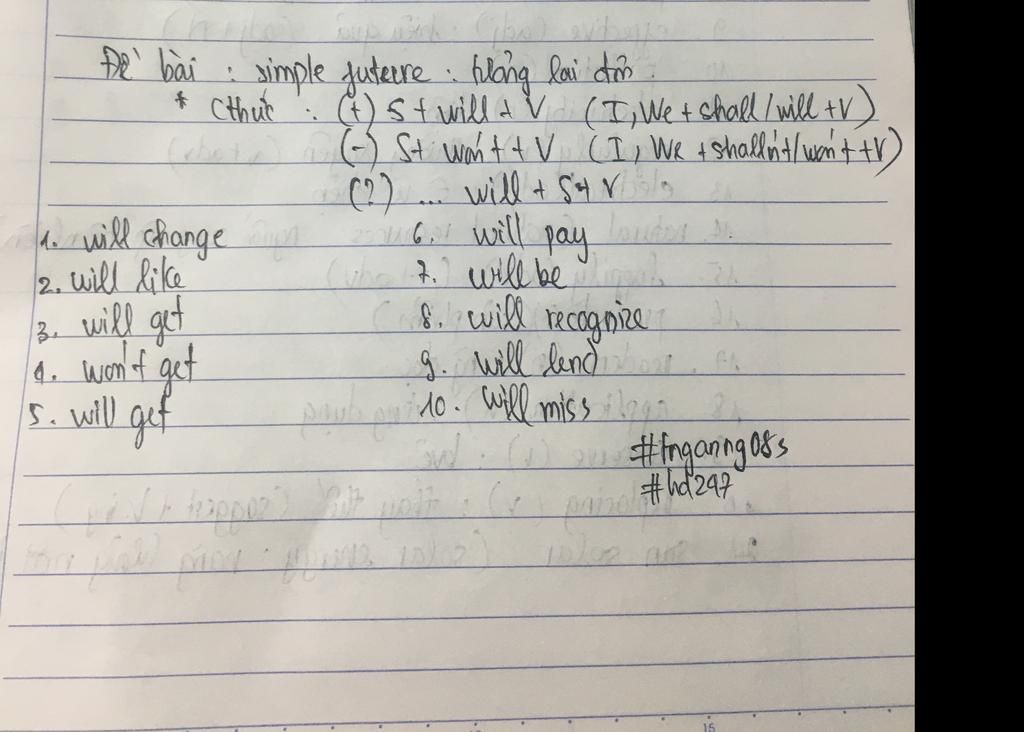 Đề bài : simple future : tương lai đơn
* Cthức : (+) S + will + V (I, We + shall/will + V)
(-) S + won't + V (I, We + shalln't/won't + V)
(?) ... will + S + V
1. will change
2. will like
3. will get
4. won't get
5. will get
6. will pay
7. will be
8. will recognize
9. will lend
10. will miss
#tnganng08s
#hd247
15